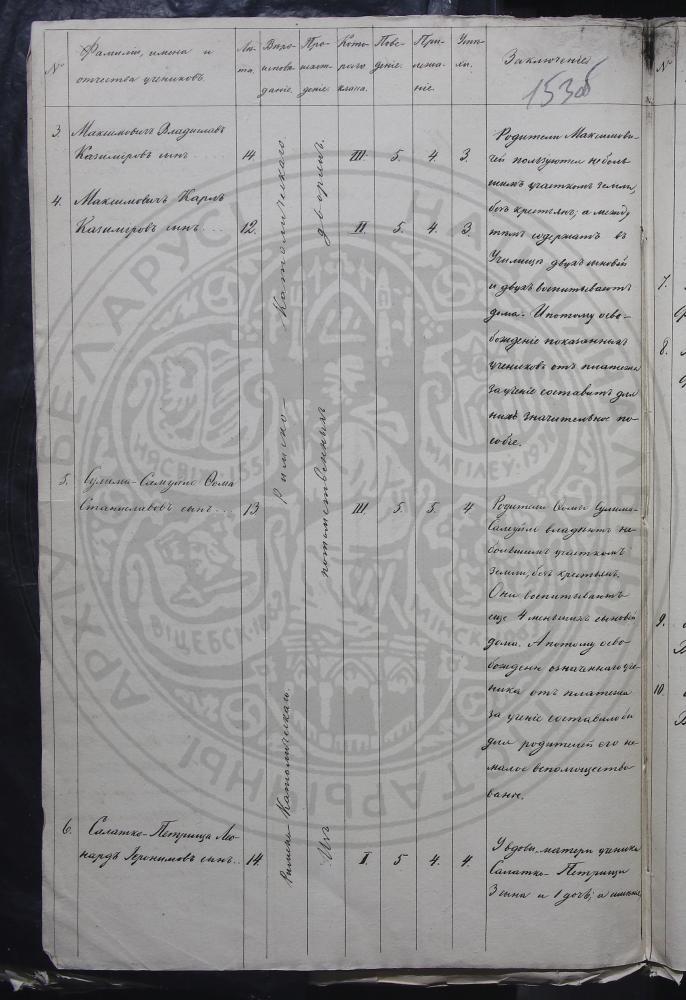 №
Фамилію, имена и
отчества учениковъ.
Лѣ-
та.
Вѣро-
исповѣ-
даніе.
Про-
исхож-
деніе.
Кото-
раго
класса.
Пове-
деніе.
При-
лежа-
ніе.
Успѣ-
хи.
Заключеніе
153об
№
3. Максимовичъ Владиславъ
Казиміровъ сынъ 14. III. 5. 4. 3.
4. Максимовичъ Карлъ
Казиміровъ сынъ 12. II. 5. 4. 3.
Римско-Католическаго
потомственныхъ дворянъ.
Родители Максимови-
чей пользуются неболь-
шимъ участкомъ земли,
безъ крестьянъ; а между
тѣмъ содержатъ въ
Училищѣ двухъ сыновей
и двухъ воспитываютъ
дома. И потому осво-
божденіе показанныхъ
учениковъ отъ платежа
за ученіе составитъ для
нихъ значительное по-
собіе.
5. Сулима-Самуйло Ѳома
Станиславовъ сынъ 13 III. 5. 5. 4
Родители Ѳомы Сулима-
Самуйло владѣютъ не-
большимъ участкомъ
земли, безъ крестьянъ.
Они воспитываютъ
еще 4 меньшихъ сыновей
дома. А потому осво-
божденіе означеннаго уче-
ника отъ платежа
за ученіе составило бы
для родителей его не-
малое вспомощество-
ваніе.
6. Салатко-Петрища Лео-
нардъ Іеронимовъ сынъ 14. I. 5 4. 4.
Римско-Католическаго.
Изъ
У вдовы-матери ученика
Салатко-Петрищи
3 сына и 1 дочь; а именно,
7.
8.
9.
10.
НЯСВІЖ
МАГІЛЕЎ
ВІЦЕБСК